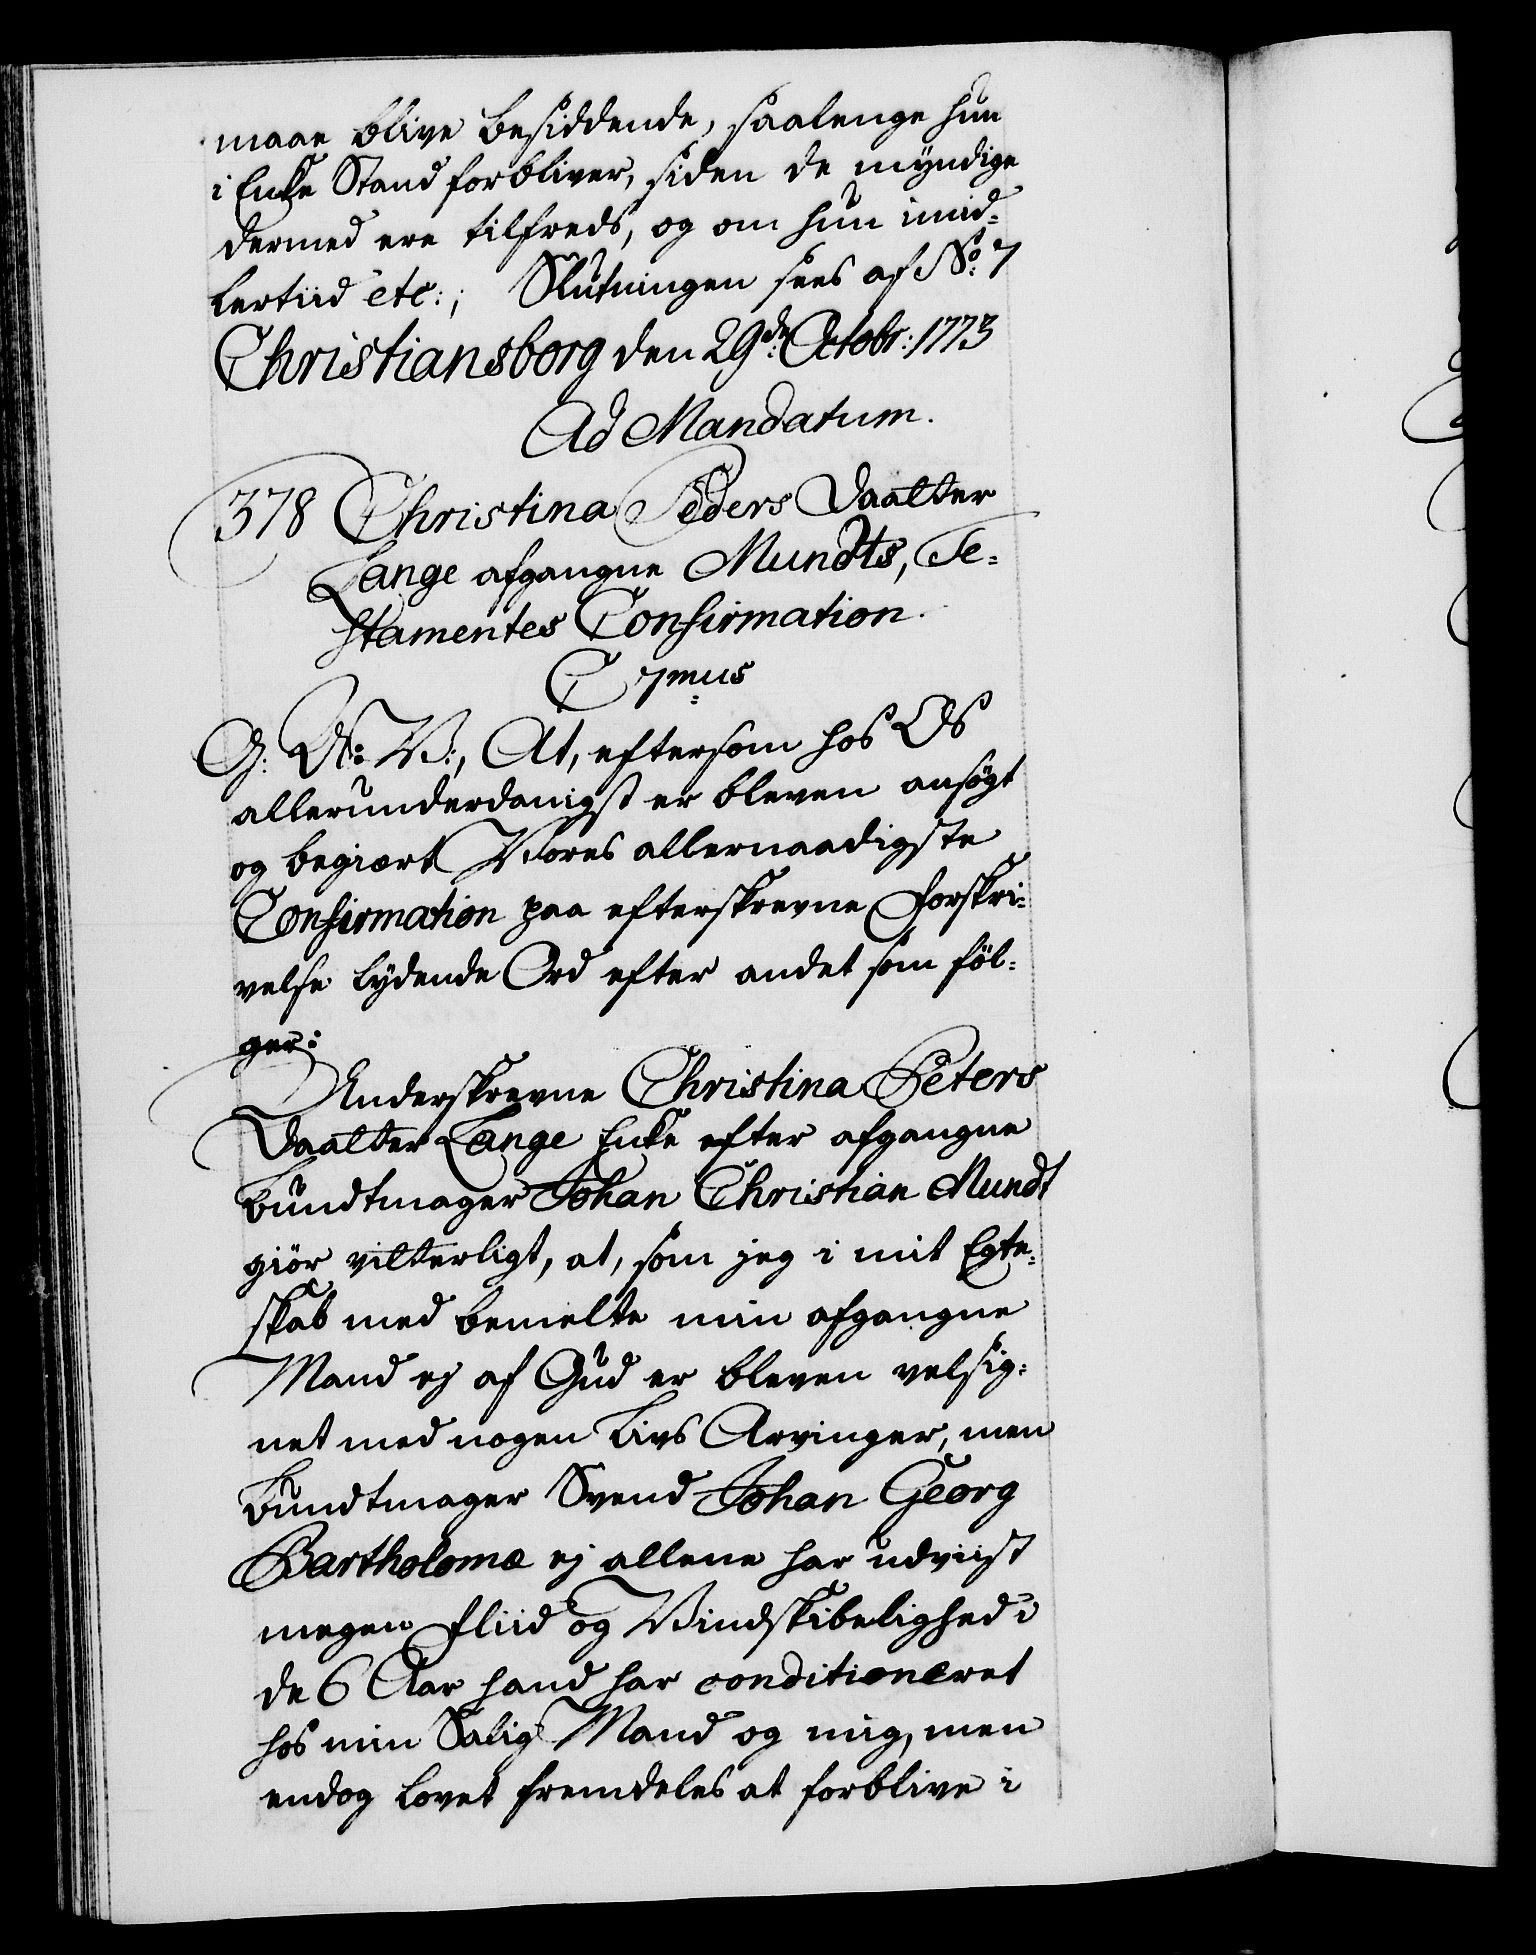 maae blive besiddende, saalenge hun
i Enke Stand forbliver, siden de mÿndige
dermed ere tilfreds, og om hun imid-
lertiid etc:; Slutningen sees af No: 7
Christiansborg den 29de Octobr: 1773
Ad Mandatum.
378 Christina Peders Daatter
Lange afgangne Mundts, Te-
stamentes Confirmation.
C 7mus
G: A: V:, At, eftersom hos Os
allerunderdanigst er bleven ansøgt
og begiært Vores allernaadigste
Confirmation paa efterskrevne Forskri-
velse lydende Ord efter andet som føl-
ger:
Underskrevne Christina Peters
Daatter Lange Enke efter afgangne
Bundtmager Johan Christian Mundt
giør vitterligt, at, som jeg i mit Egte-
skab med bemelte min afgangne
Mand ej af Gud er bleven velsig-
net med nogen Livs Arvinger, men
Bundtmager Svend Johan Georg
Bartholomæ ej allene har udviist
megen Fliid og Vindskibelighed i
de 6 Aar hand har conditioneret
hos min Salig Mand og mig, men
endog lovet fremdeles at forblive i